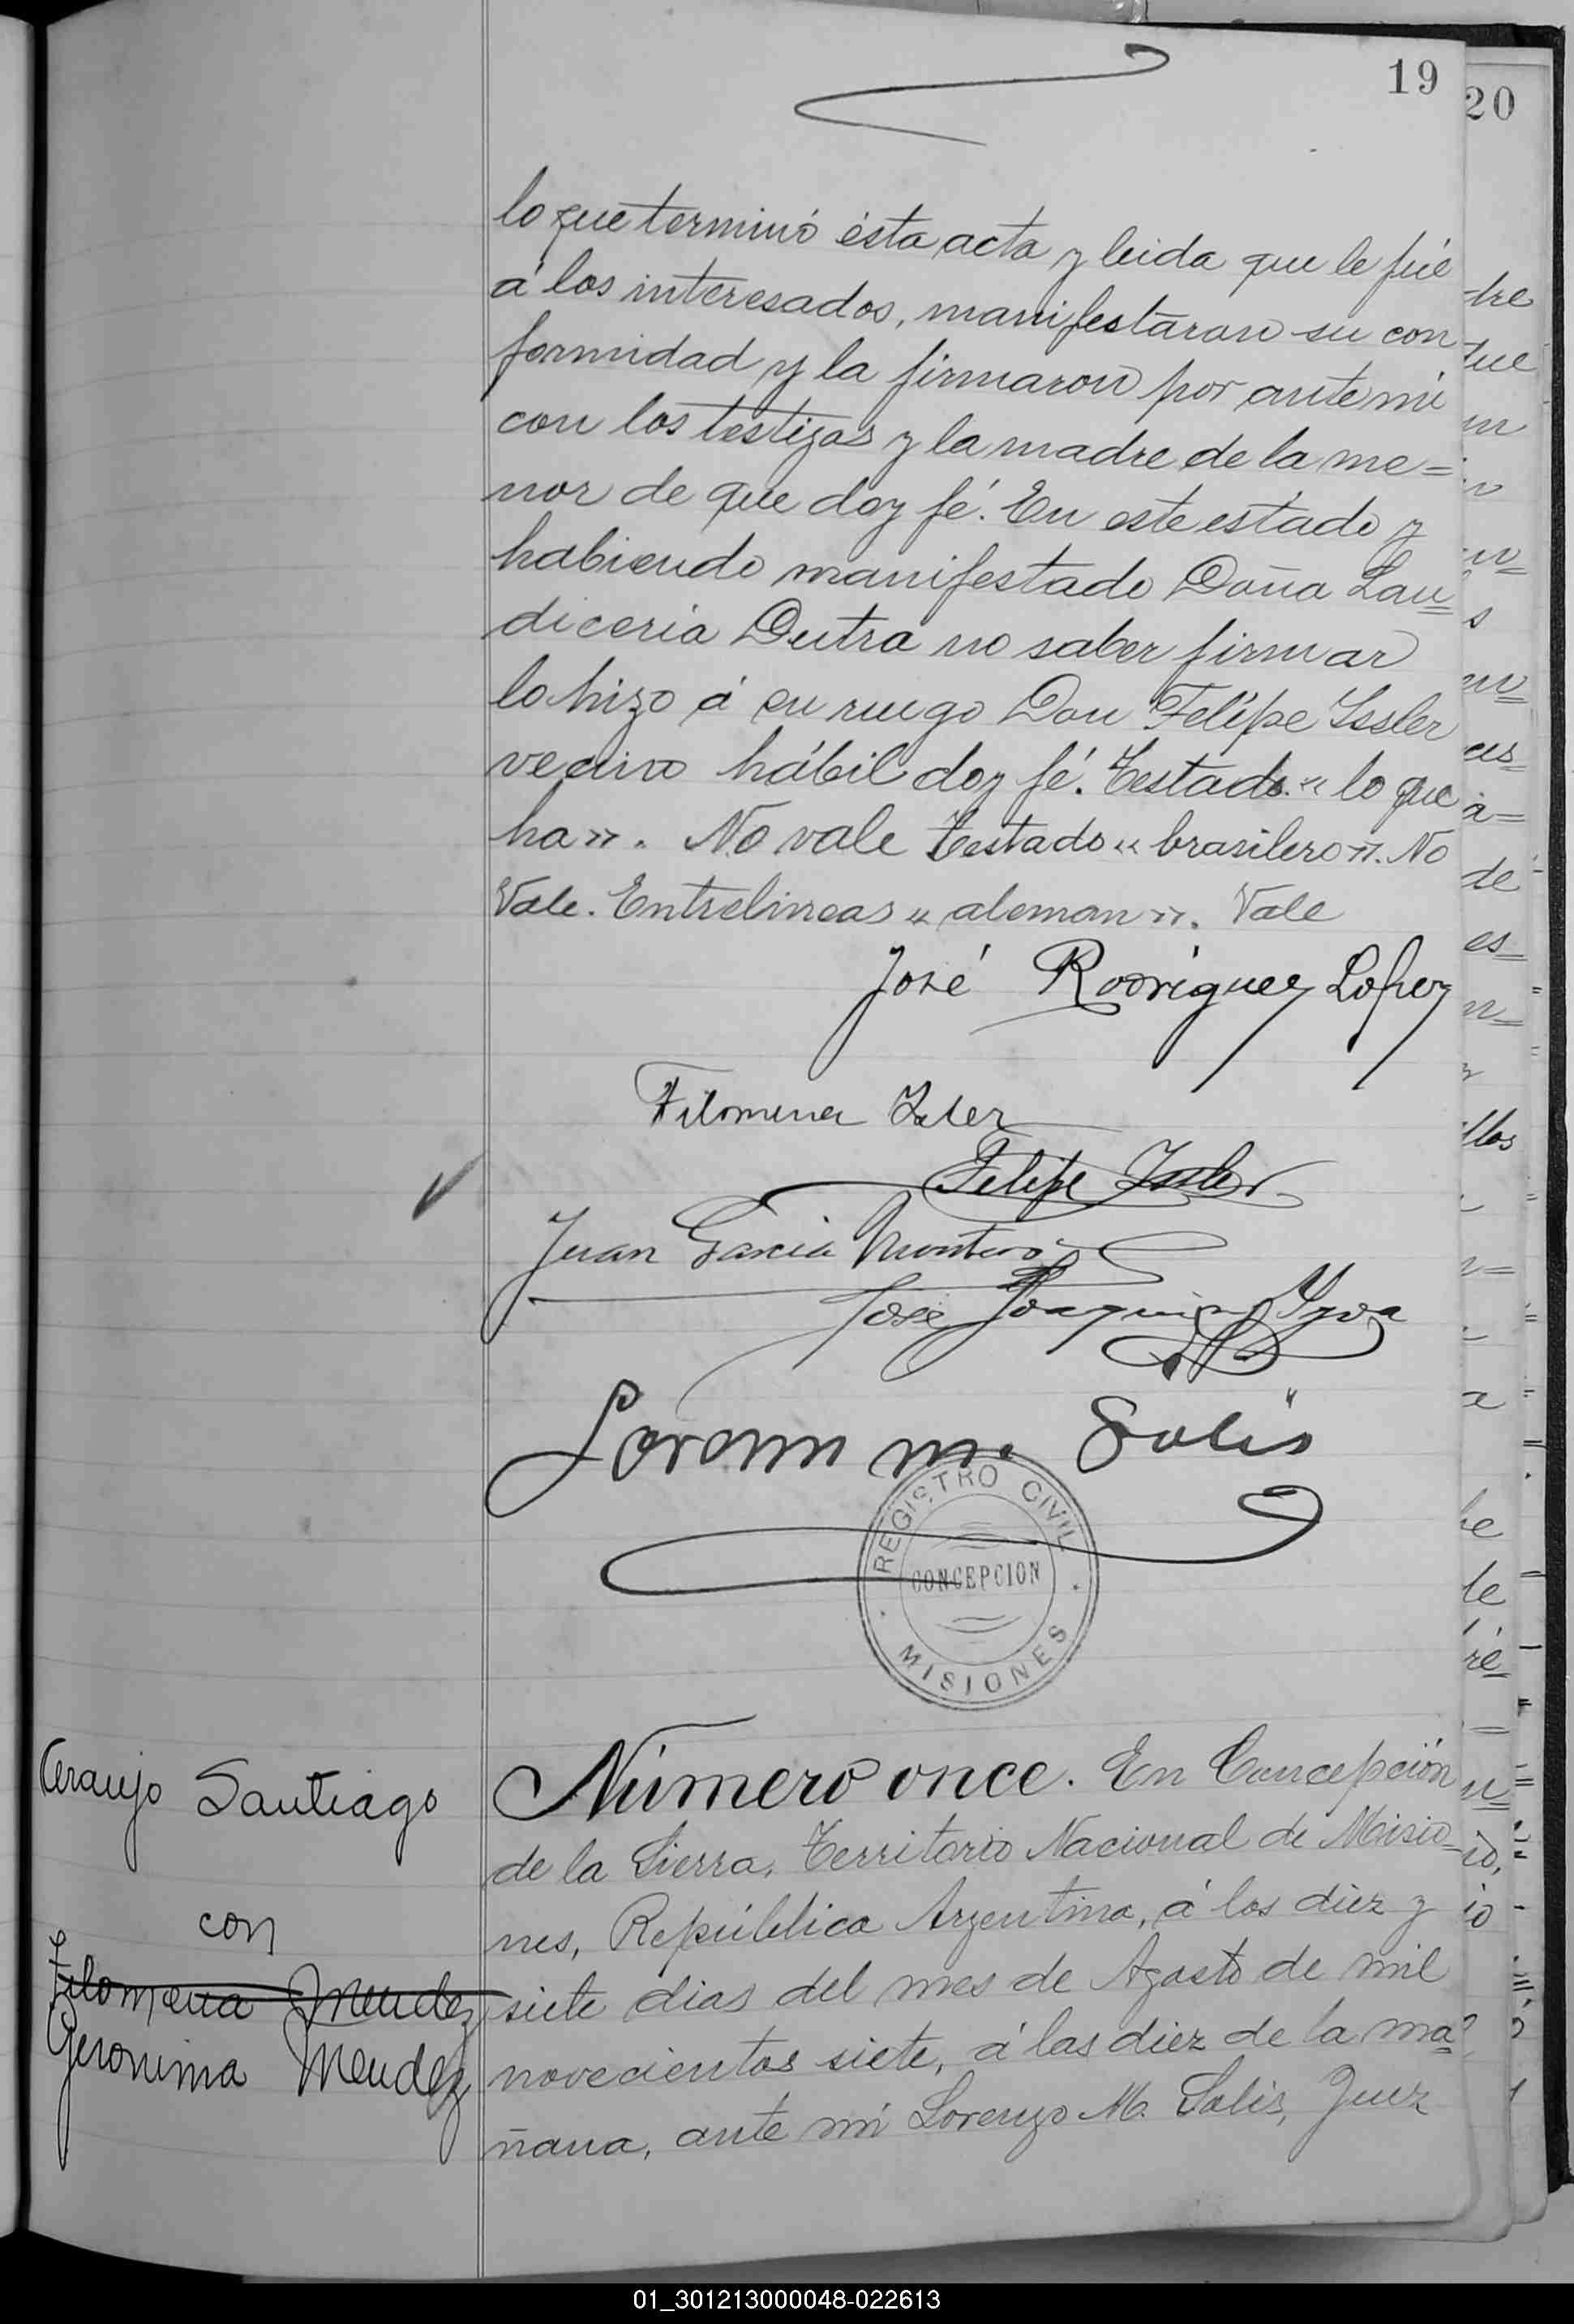 19
20
lo que terminó ésta acta y leida que le fué
á los interesados, manifestaron su con
formidad y la firmaron por ante mi
con los testigos y la madre de la me=
nor de que doy fé. En este estado y
habiendo manifestado Doña Lau=
diceria Dutra no saber firmar
lo hizo á su ruego Don Felipe Issler
vecino hábil doy fé. Testado "lo que
ha". No vale Testado "brasilero". No
Vale. Entrelineas "aleman". Vale
José Rodriguez Lopez
Filomena Isler
Felipe Issler
Juan Garcia Montero
José Joaquin
Lorenzo M. Solis
REGISTRO CIVIL
CONCEPCION
MISIONES
Araujo Santiago
con
Filomena Mendez
Geronima Mendez
Número once. En Concepción
de la Sierra, Territorio Nacional de Misio-
nes, República Argentina, á los diez y
siete dias del mes de Agosto de mil
novecientos siete, á las diez de la ma=
ñana, ante mi Lorenzo M. Solis, Juez
01_301213000048-022613